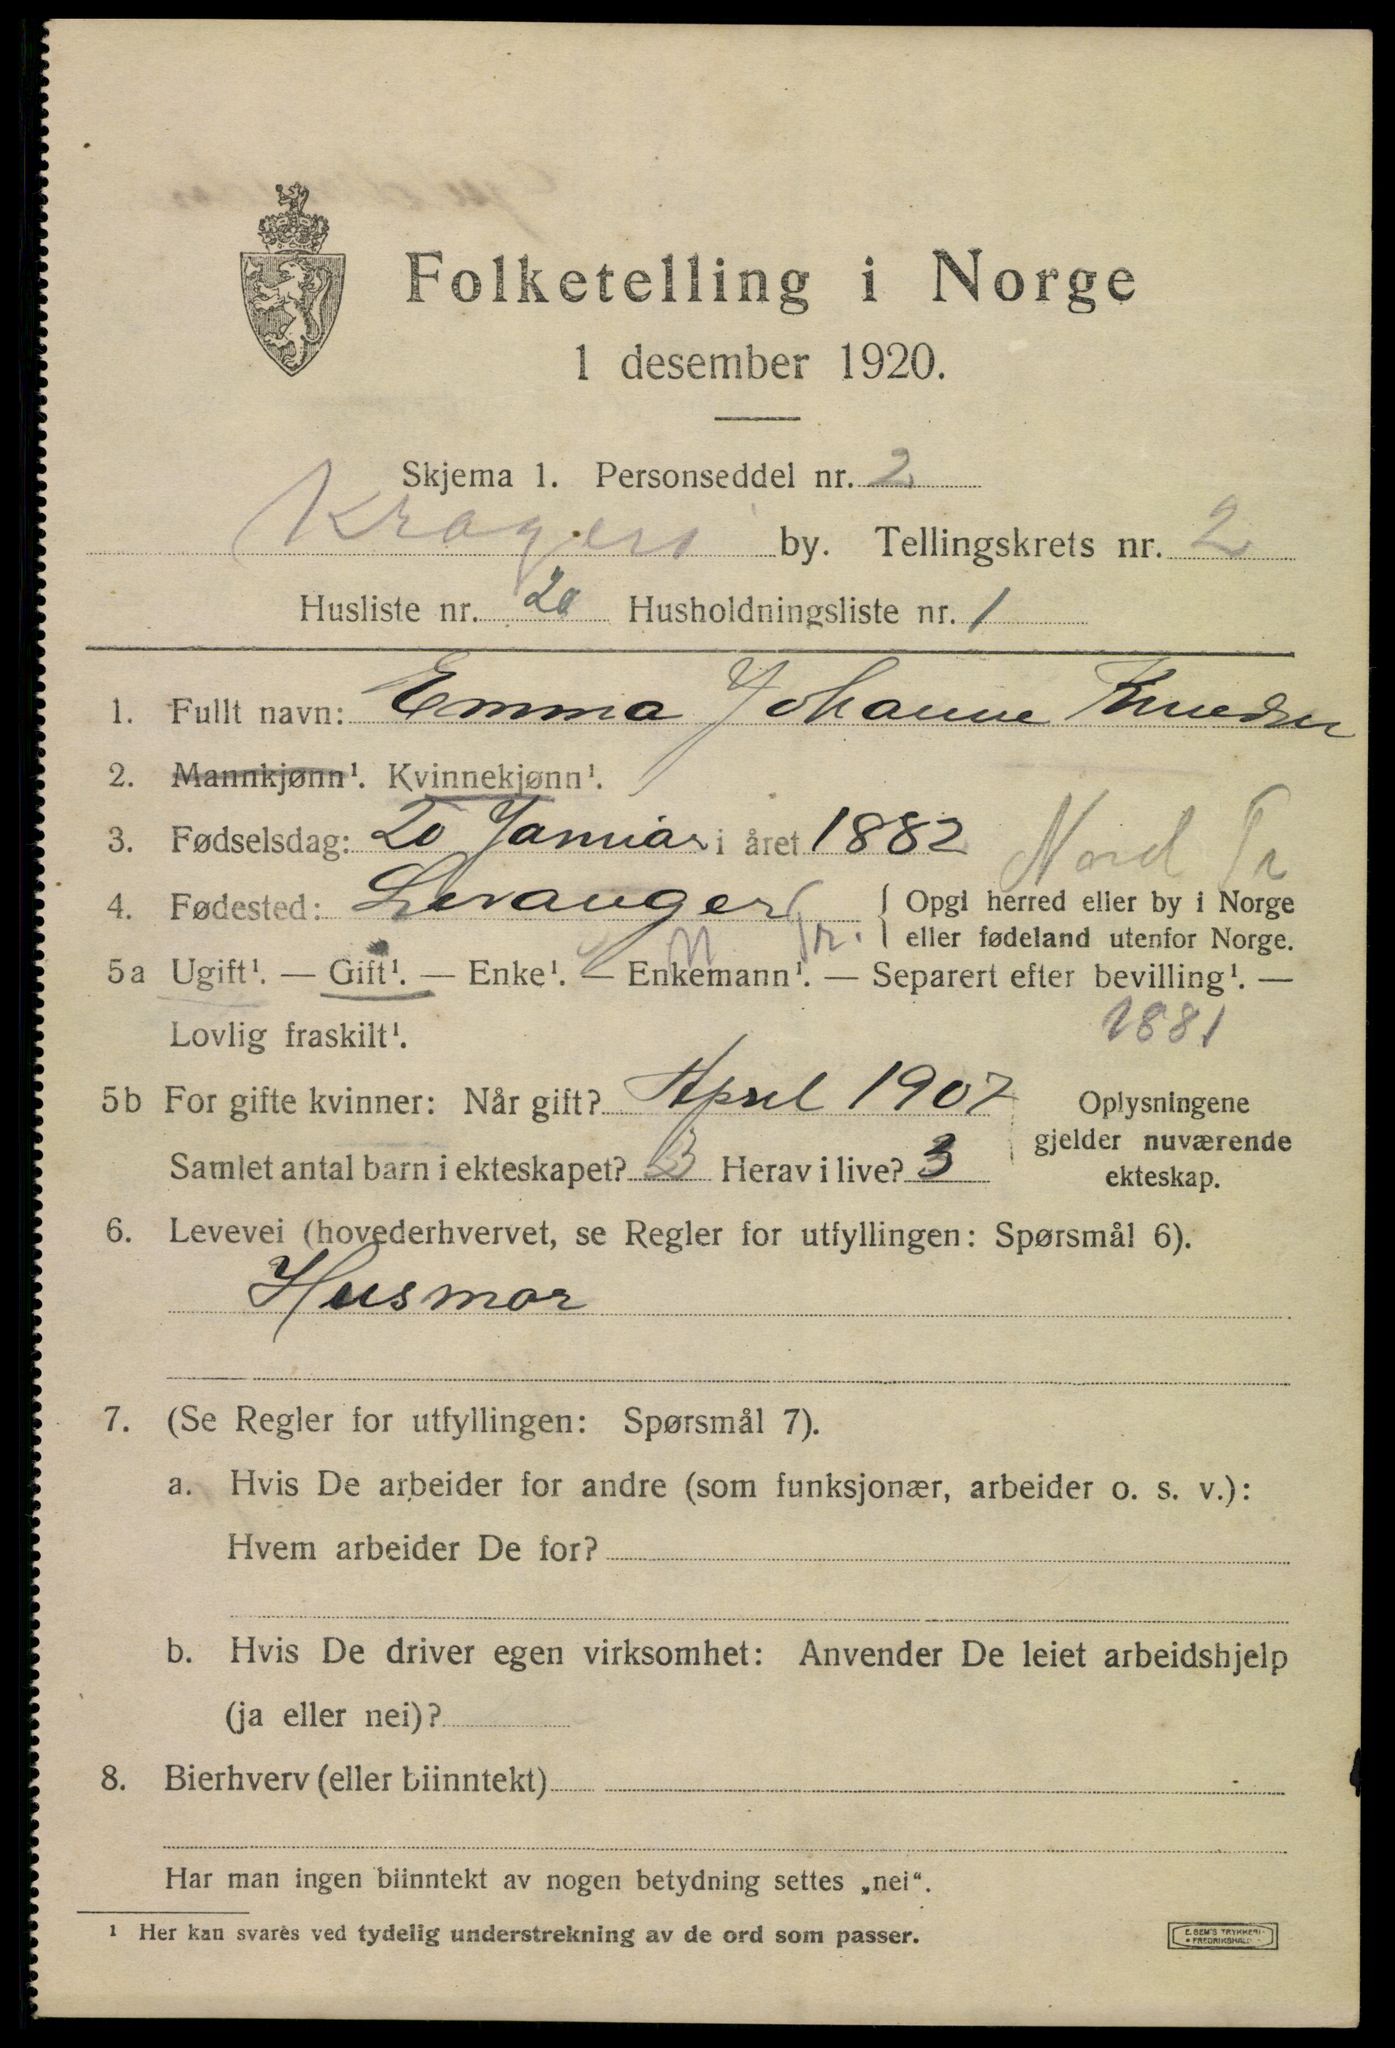 Folketelling i Norge
1 desember 1920.
Skjema 1. Personseddel nr. 2
Kragerø by. Tellingskrets nr. 2
Husliste nr. 20 Husholdningsliste nr. 1
1. Fullt navn: Emma Johanne Knudsen
2. Mannkjønn¹. Kvinnekjønn¹.
3. Fødselsdag: 20 Januar i året 1882
Nord Tr
4. Fødested: Levanger { Opgi herred eller by i Norge
N. Tr. eller fødeland utenfor Norge.
5a Ugift¹. — Gift¹. — Enke¹. — Enkemann¹. — Separert efter bevilling¹. —
Lovlig fraskilt¹. 1881
5b For gifte kvinner: Når gift? April 1907 Oplysningene
gjelder nuværende
Samlet antal barn i ekteskapet? 3 Herav i live? 3 ekteskap.
6. Levevei (hovederhvervet, se Regler for utfyllingen: Spørsmål 6).
Husmor
7. (Se Regler for utfyllingen: Spørsmål 7).
a. Hvis De arbeider for andre (som funksjonær, arbeider o. s. v.):
Hvem arbeider De for?
b. Hvis De driver egen virksomhet: Anvender De leiet arbeidshjelp
(ja eller nei)?
8. Bierhverv (eller biinntekt)
Har man ingen biinntekt av nogen betydning settes „nei“.
¹ Her kan svares ved tydelig understrekning av de ord som passer.
E. SEM'S TRYKKERI
FREDRIKSHALD